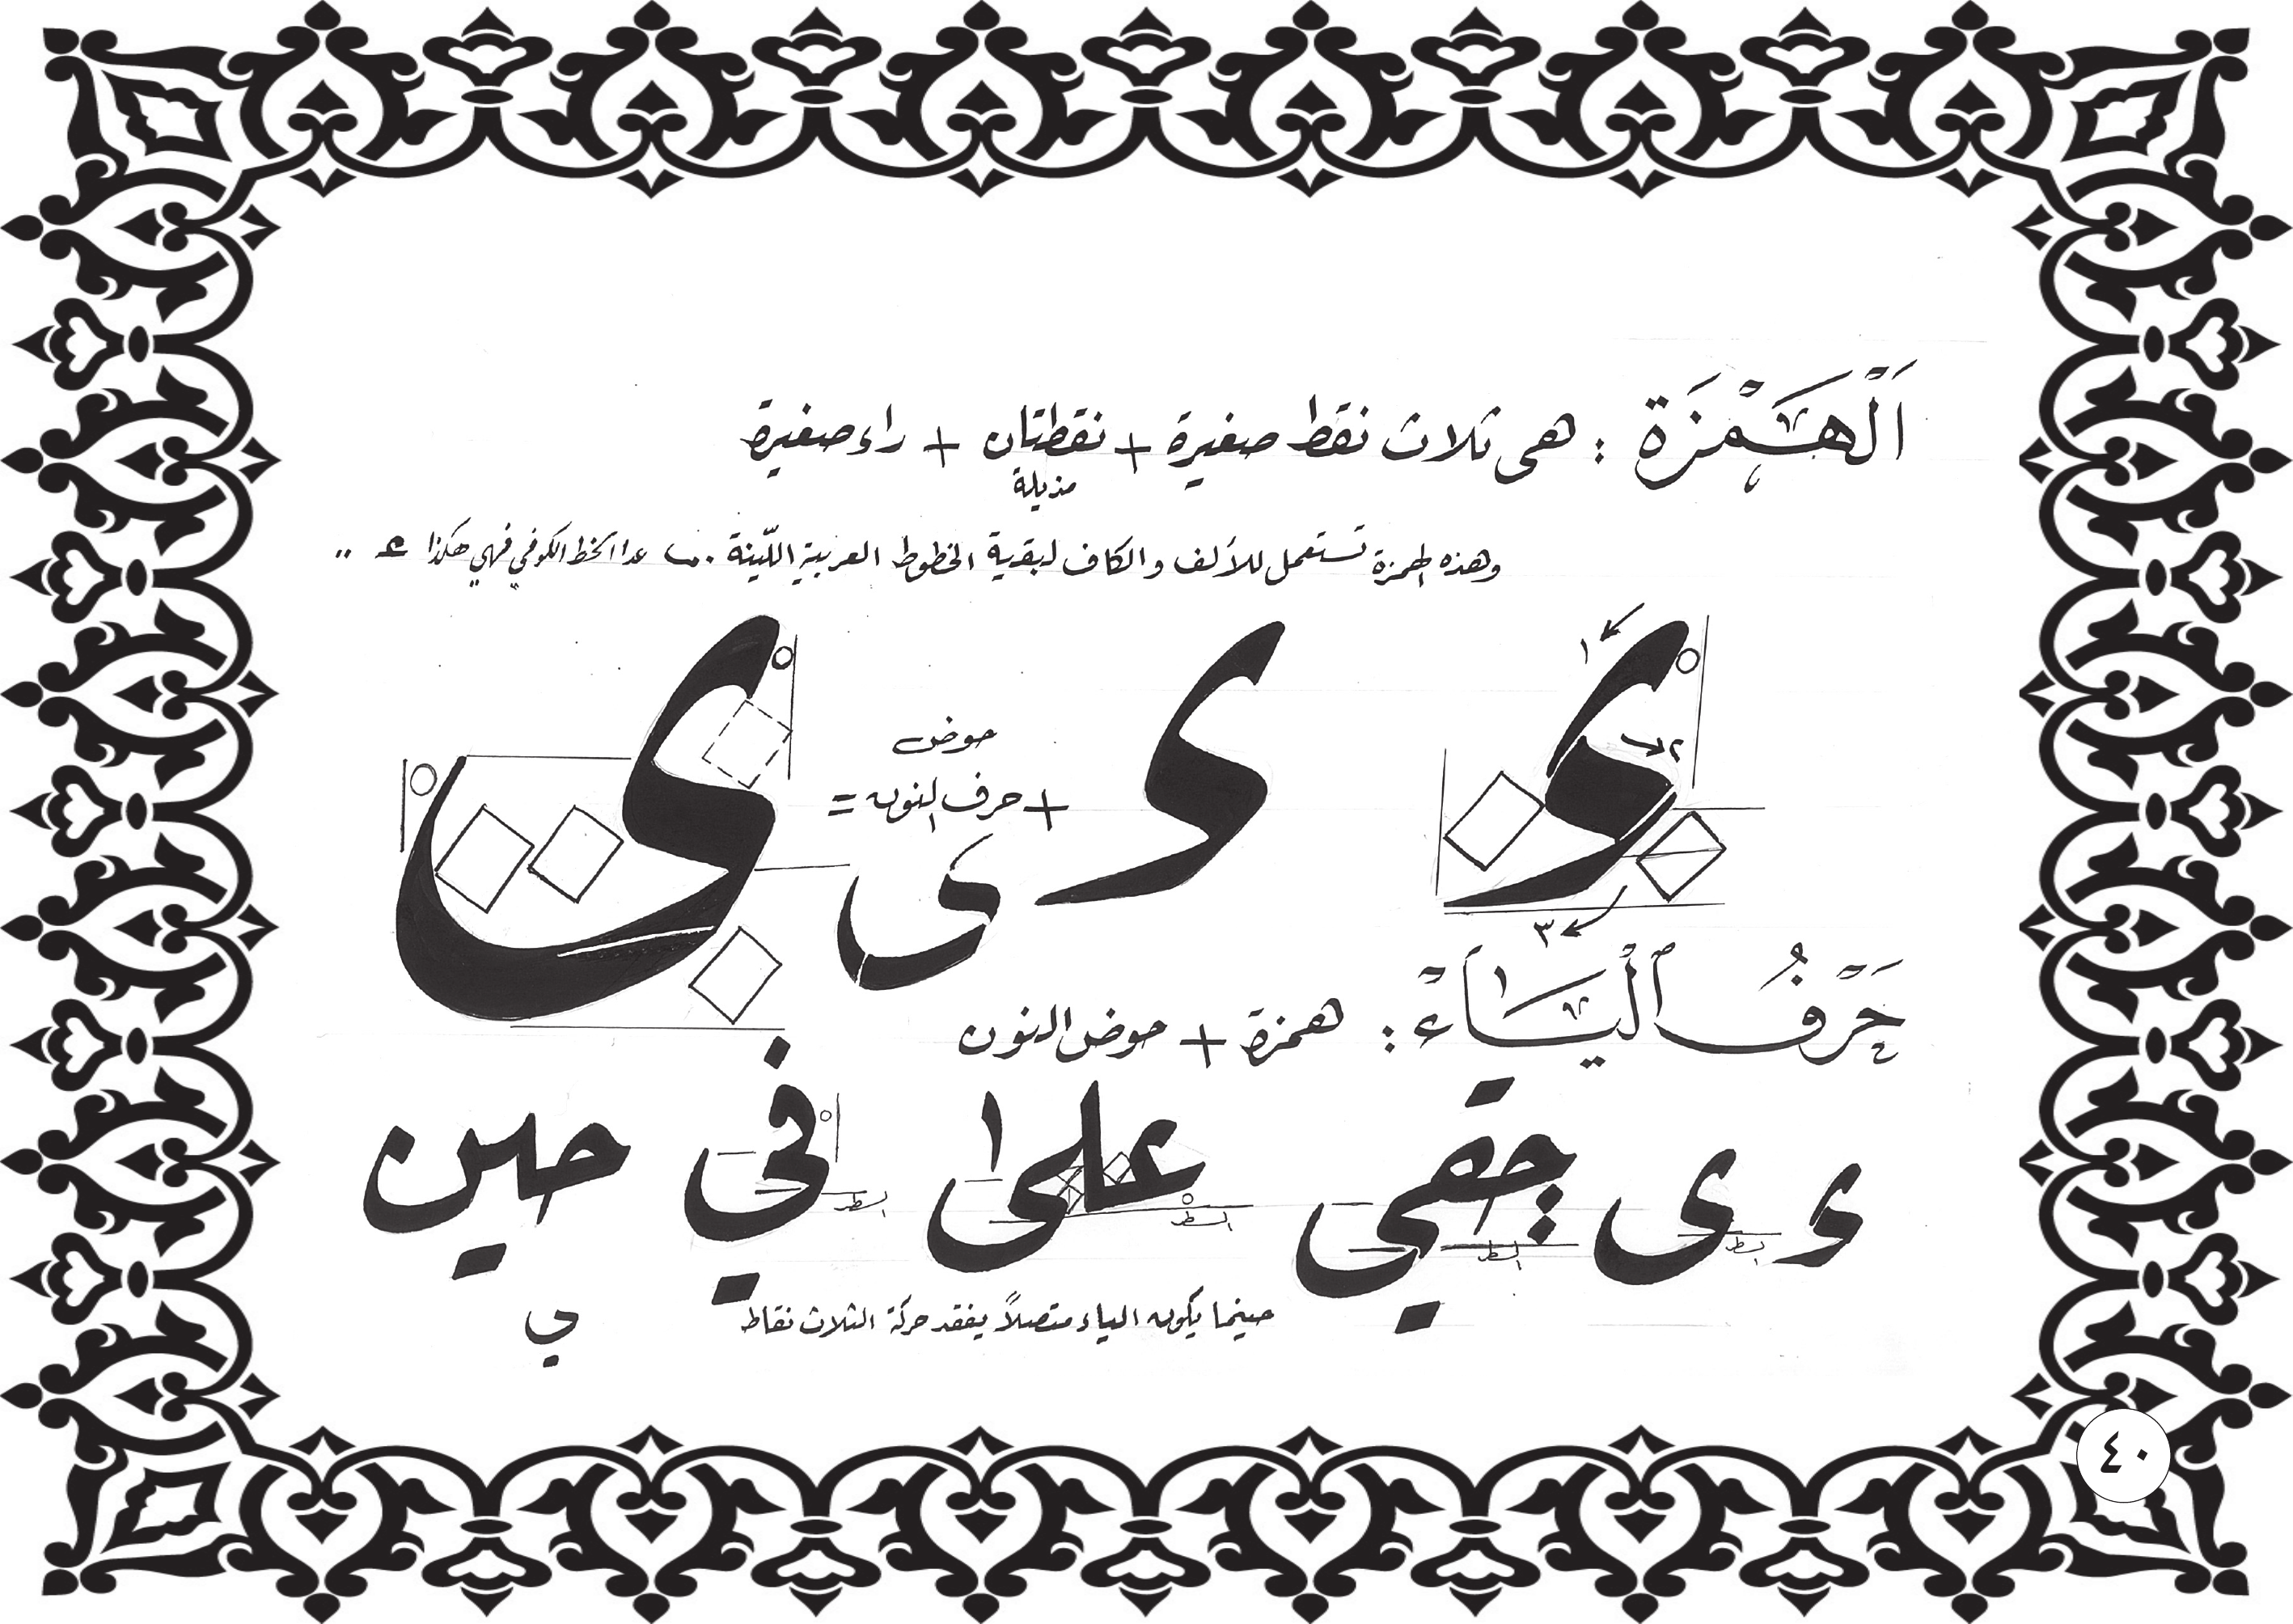 اَلْهَمْزَة : هي ثلاث نقط صغيرة + نقطتان + راء صغيرة
مذيلة
وهذه الهمزة تستعمل للألف والكاف لبقية الخطوط العربية اللّينة .. ما عدا الخط الكوفي فهي هكذا ء ..
١
٢
٣
ء
+
حوض
حرف النون =
ى
ى
حَرْفُ ٱلْيَاءْ : همزة + حوض النون
ء ى حقي على في حين
السطر
السطر
السطر
السطر
حينما يكون الياء متصلاً يفقد حركة الثلاث نقاط
ي
٤٠